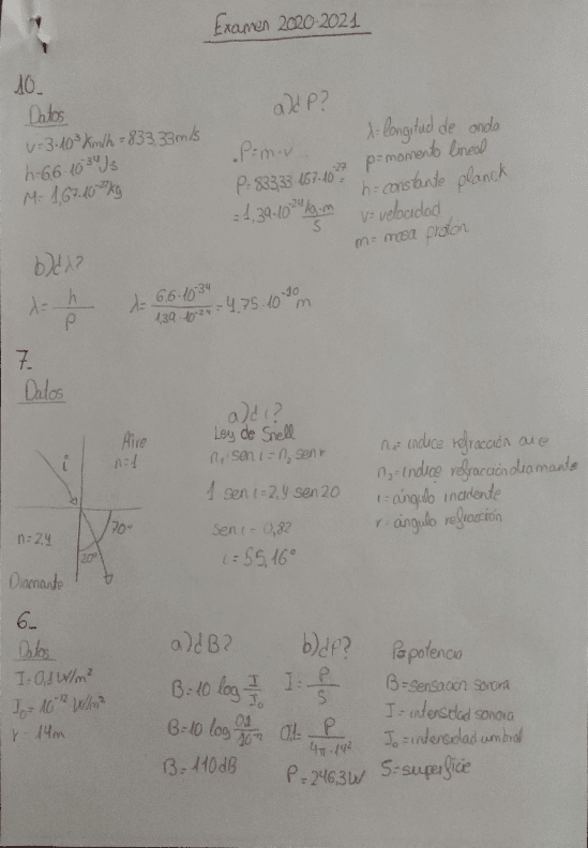 Examen 2020-2021
10_
Datos
V=3·10³ Km/h = 833,33m/s
h=6,6·10⁻³⁴ Js
M=1,67·10⁻²⁷kg
a)¿P?
P=m·v
P=833,33·1,67·10⁻²⁷=
=1,39·10⁻²⁴ kg·m/s
λ=longitud de onda
p=momento lineal
h=constante planck
v=velocidad
m=masa protón
b)¿λ?
λ=h/p λ=6,6·10⁻³⁴/1,39·10⁻²⁴=4,75·10⁻¹⁰m
7_
Datos
i
Aire
n=1
n=2,4
70º
20º
Diamante
a)¿i?
Ley de Snell
n₁ sen i=n₂ sen r
1 sen i=2,4 sen 20
sen i=0,82
i=55,16º
n₁=indice refracción aire
n₂=indice refracción diamante
i=ángulo incidente
r=ángulo refracción
6_
Datos
I=0,1W/m²
I₀=10⁻¹² W/m²
r=14m
a)¿B?
B=10 log I/I₀
B=10 log 0,1/10⁻¹²
B=110dB
b)¿P?
I=P/S
0,1=P/4π·14²
P=246,3W
P=potencia
B=sensacion sonora
I=intensidad sonora
I₀=intensidad umbral
S=superficie